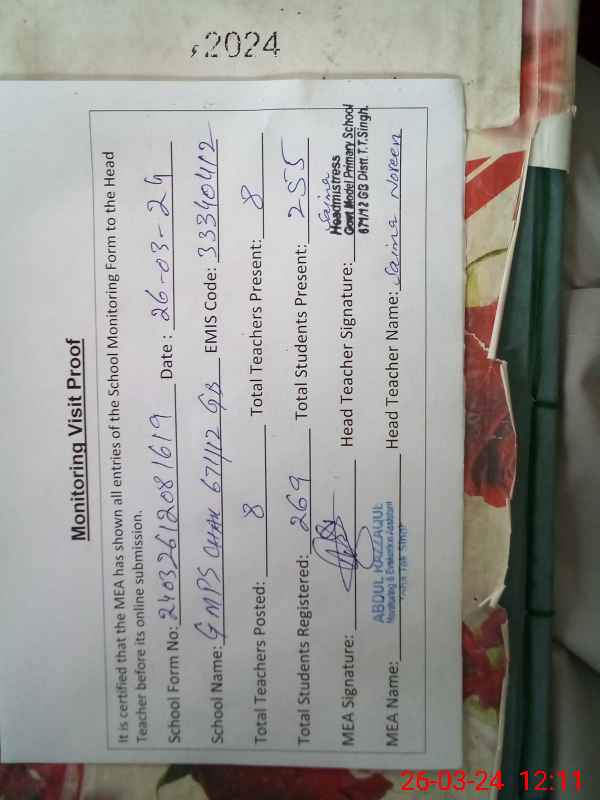 ,2024
Monitoring Visit Proof
It is certified that the MEA has shown all entries of the School Monitoring Form to the Head
Teacher before its online submission.
School Form No: 24032612081619 Date : 26-03-24
School Name: GMPS CHAK 671/12 GB EMIS Code: 33340412
Total Teachers Posted: 8 Total Teachers Present: 8
Total Students Registered: 269 Total Students Present: 255
MEA Signature: Head Teacher Signature: Saima
Headmistress
Govt. Model Primary School
671/12 GB Distt. T.T.Singh.
MEA Name: ABDUL RAZZAQUE Head Teacher Name: Saima Noreen
Monitoring & Evaluation Assistant
Toba Tek Singh
26-03-24 12:11